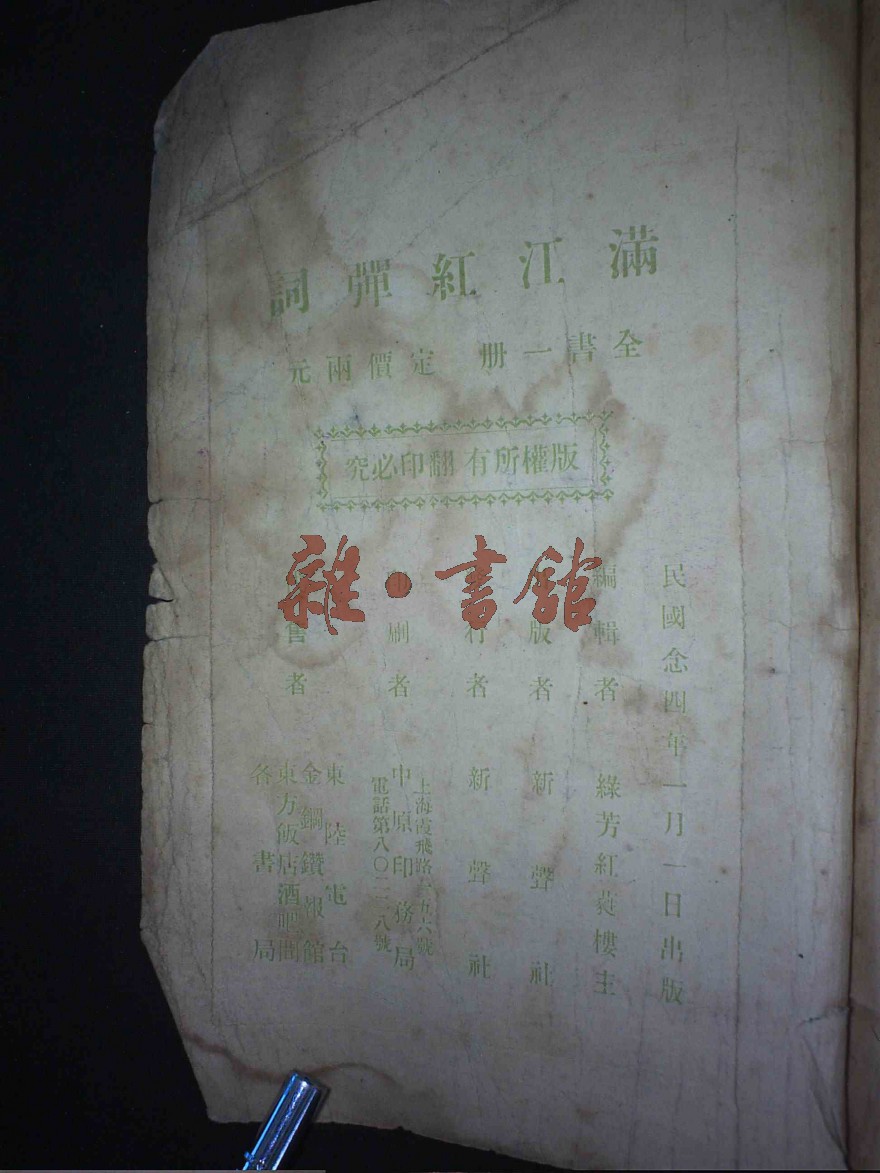 滿江紅彈詞
全書一册 定價兩元
版權所有 翻印必究
民國念四年一月一日出版
編輯者 綠芳紅蕤樓主
版者 新聲社
行者 新聲社
刷者 中原印務局
上海霞飛路 五六號
電話第八〇二一八號
售者 東陸電台
金鋼鑽報館
東方飯店酒吧間
各書局
雜·書館